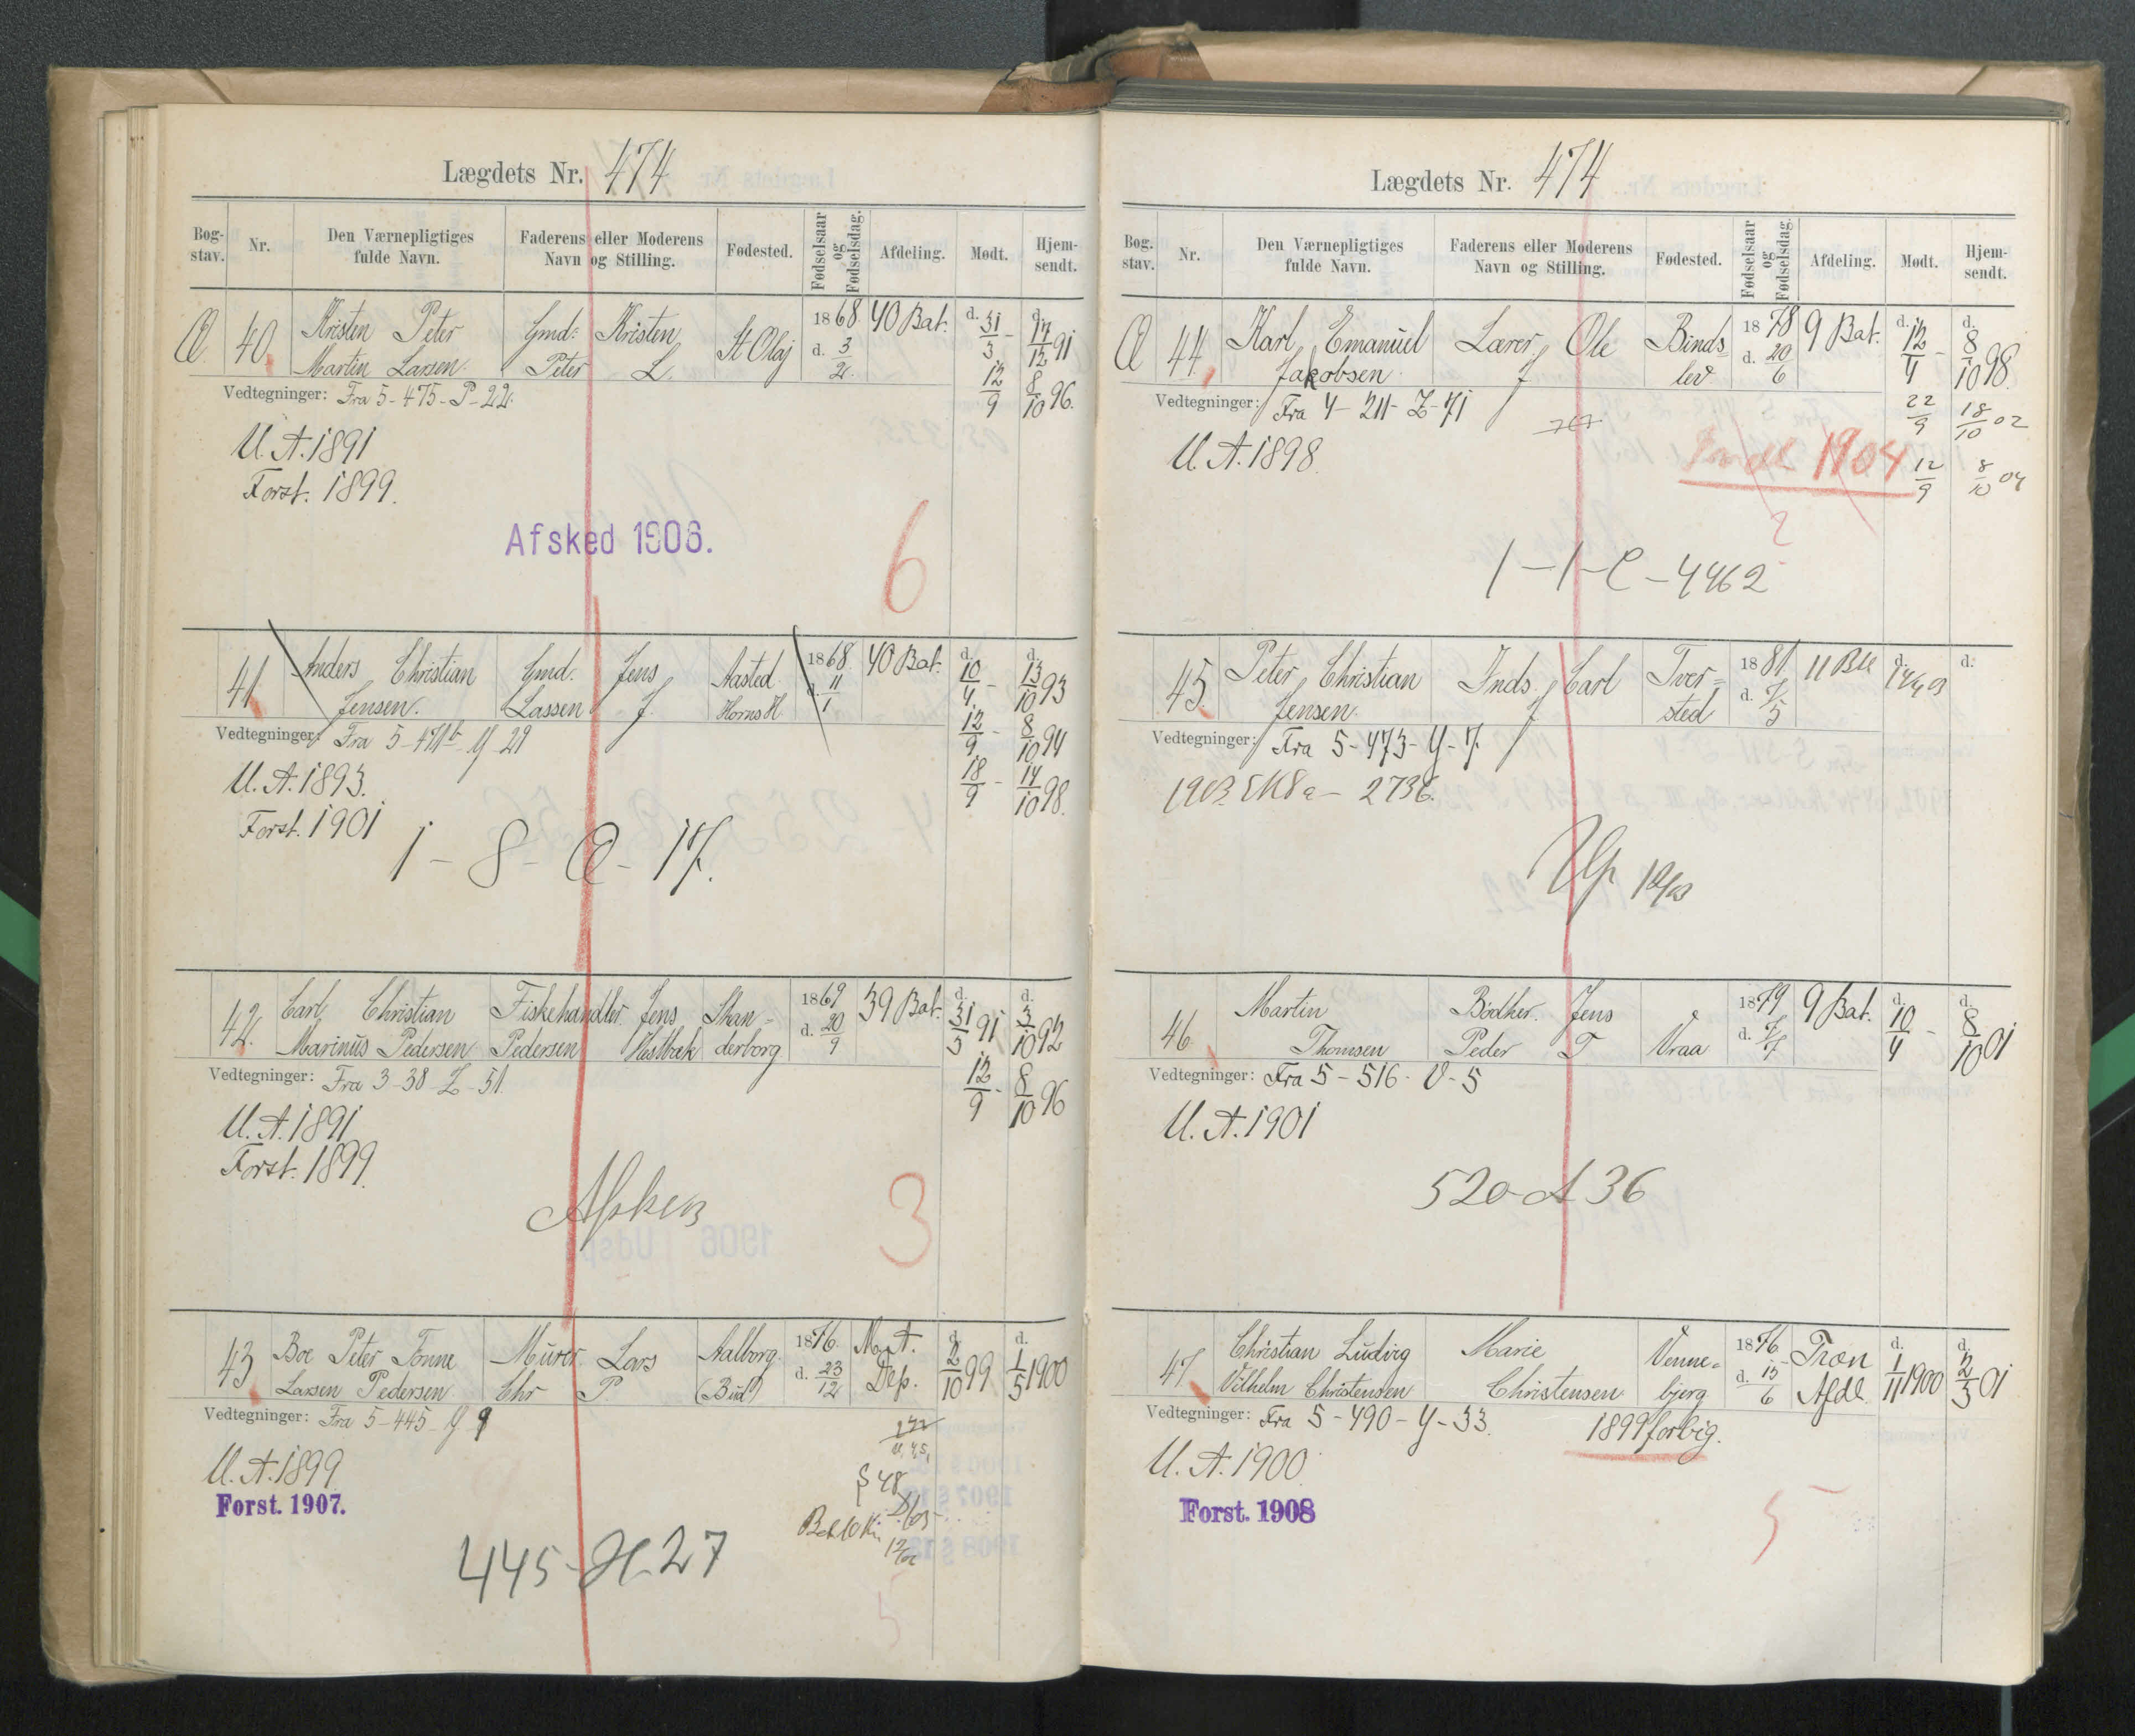 Lægdets Nr. 474
Bog-stav. Nr. Den Værnepligtiges fulde Navn. Faderens eller Moderens Navn og Stilling. Fødested. Fødselsaar og Fødselsdag. Afdeling. Mødt. Hjem-sendt.
Æ 40 Kristen Peter Gmd: Kristen St Olaj 1868 40 Bat. d. 31/3 - d. 17/12 91
Martin Larsen. Peter L. d. 3/2. 12/9 8/10 96.
Vedtegninger: Fra 5-475-P-22.
U.A. 1891
Forst. 1899.
Afsked 1906.
6
41 Anders Christian Gmd. Jens Aasted 1868. 40 Bat. d. 10/4. - d. 13/10 93
Jensen. Lassen J. Horns H. d. 11/1 12/9 - 8/10 94
Vedtegninger: Fra 5-471b-Y-29 18/9 - 14/10 98.
U.A. 1893.
Forst. 1901
1-8-Æ-17.
42. Carl Christian Fiskehandler Jens Skan= 1869 39 Bat. d. 31/3 91 d. 3/10 92
Marinus Pedersen Pedersen Vestbæk derborg d. 20/9 12/9 - 8/10 96
Vedtegninger: Fra 3-38-Z-51.
U.A. 1891
Forst. 1899.
3
43 Boe Peter Tonne Murer Lars Aalborg. 1876. M.A. d. 2/10 99 d. 1/5 1900
Larsen Pedersen Chr P. (Bud.) d. 23/12 Dep.
Vedtegninger: Fra 5-445-Y-9
U.A. 1899.
§ 48
Forst. 1907.
445-H-27
5
Lægdets Nr. 474
Bog.stav. Nr. Den Værnepligtiges fulde Navn. Faderens eller Moderens Navn og Stilling. Fødested. Fødselsaar og Fødselsdag. Afdeling. Mødt. Hjem-sendt.
Æ 44 Karl Emanuel Lærer Ole Binds= 1878 9 Bat. d. 12/4 - d. 8/10 98.
Jakobsen J lev d. 20/6
Vedtegninger: Fra 4-211-Z-71 22/9 18/10 02
U.A. 1898. 1904 12/9 8/10 04
1-1-C-4462
45. Peter Christian Inds. Carl Tver= 1881 11 Btl d. 14/4 03 d.
Jensen. J sted d. 7/5
Vedtegninger: Fra 5-473-Y-7.
46 Martin Bødker. Jens Vraa 1879 9 Bat. d. 10/4 - d. 8/10 01
Thomsen Peder T d. 7/7
Vedtegninger: Fra 5-516-V-5
U.A. 1901
520-A 36
47 Christian Ludvig Marie Venne= 1876 Træn d. 1/11 1900 d. 2/5 01
Vilhelm Christensen Christensen bjerg d. 15/6 Afdl.
Vedtegninger: Fra 5-490-Y-33. 1899 forbig.
U.A. 1900
Forst. 1908
5